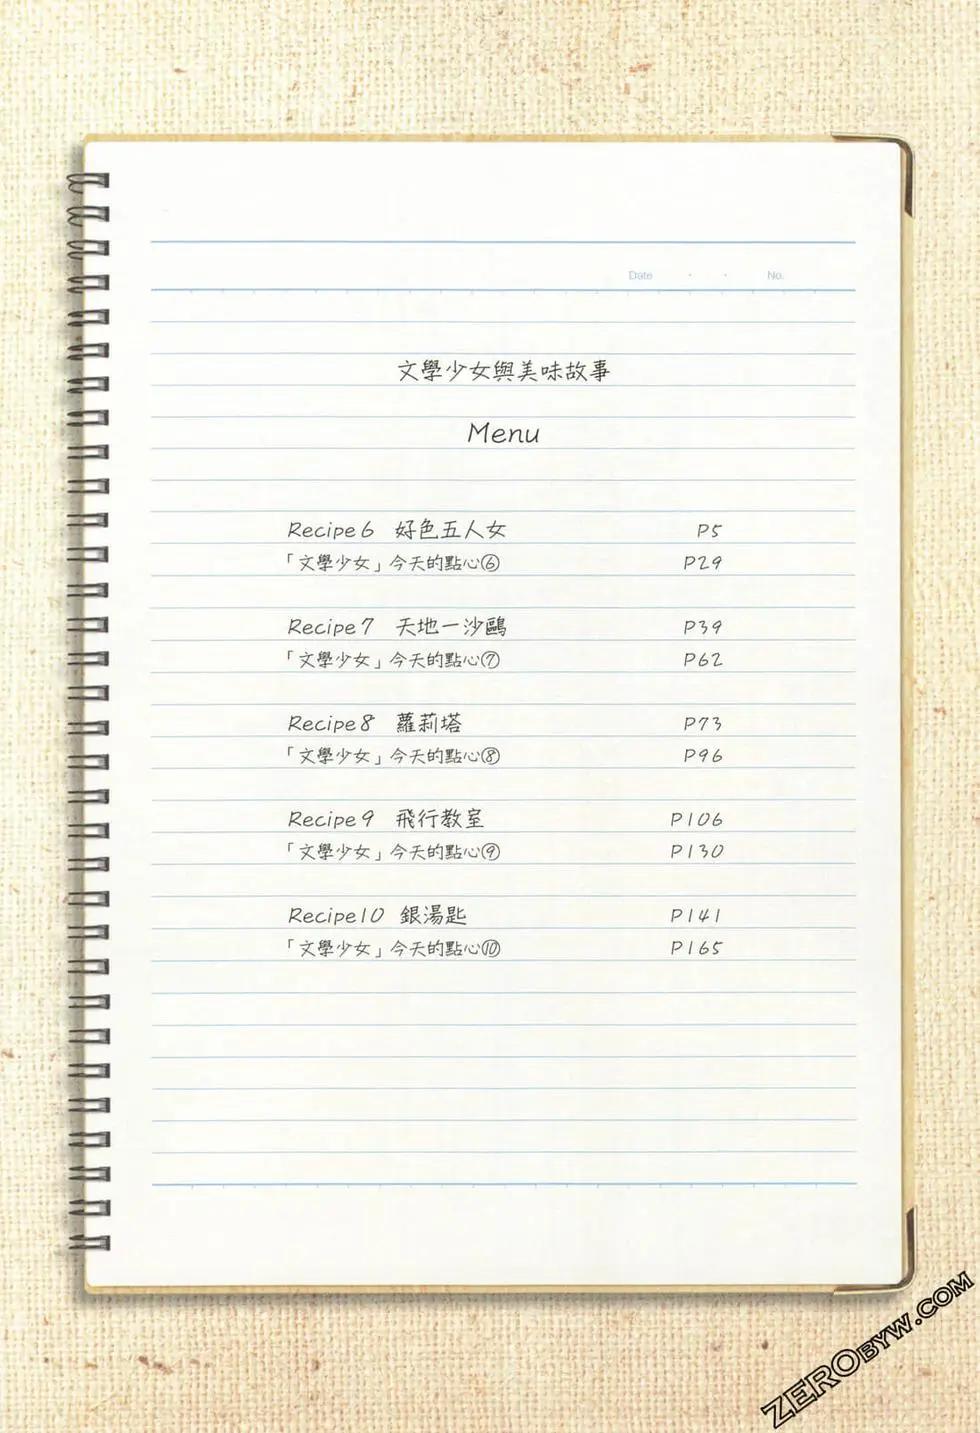 Date . . No.
文學少女與美味故事
Menu
Recipe6 好色五人女 P5
「文學少女」今天的點心⑥ P29
Recipe7 天地一沙鷗 P39
「文學少女」今天的點心⑦ P62
Recipe8 蘿莉塔 P73
「文學少女」今天的點心⑧ P96
Recipe9 飛行教室 P106
「文學少女」今天的點心⑨ P130
Recipe10 銀湯匙 P141
「文學少女」今天的點心⑩ P165
ZEROBYW.COM